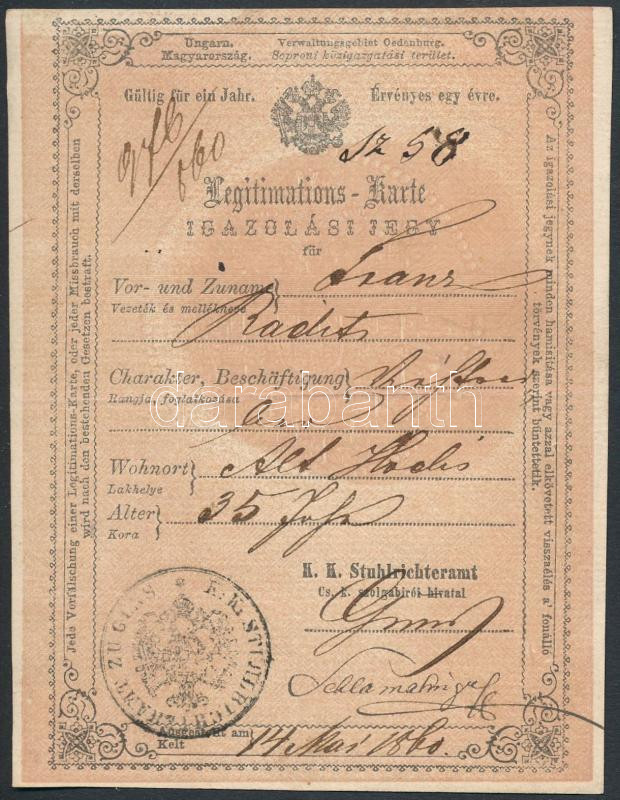 Ungarn. Verwaltungsgebiet Oedenburg.
Magyarország. Soproni közigazgatási terület.
Gültig für ein Jahr. Érvényes egy évre.
976/860
Sz 58
Legitimations-Karte
IGAZOLÁSI JEGY
für
Vor- und Zunam Franz
Vezeték és mellékneve
Radits
Charakter, Beschäftigung
Rangja, foglalkozása
Wohnort Alt Hodis
Lakhelye
Alter 35 Jahr
Kora
K. K. Stuhlrichteramt
Cs. k. szolgabírói hivatal
K. K. STUHLRICHTERAMT ZU GÜNS
Ausgestellt am 14 Mai 1860.
Kelt
Jede Verfälschung einer Legitimations-Karte, oder jeder Missbrauch mit derselben
wird nach den bestehenden Gesetzen bestraft.
Az igazolási jegynek minden hamisítása vagy azzal elkövetett visszaélés a' fonálló
törvények szerint büntettetik.
darabanth